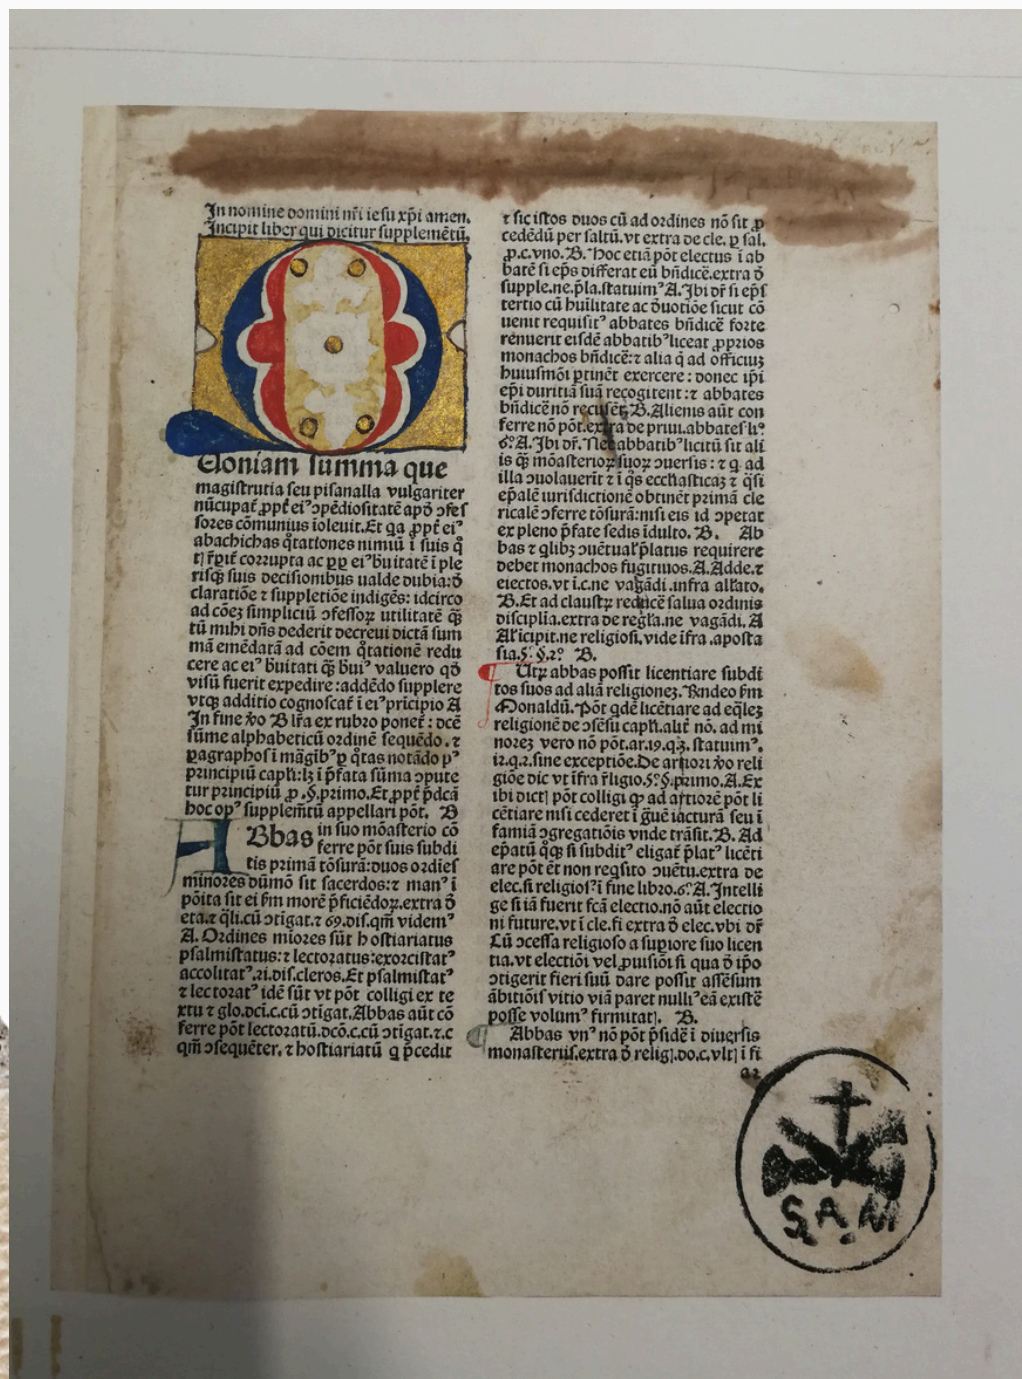 In nomine domini nr̄i iesu xp̄i amen.
Incipit liber qui dicitur supplemētū.
Qoniam summa que
magistrutia seu pisanalla vulgariter
nūcupat᷑ ꝓpt̄ eiꝰ ↄpēdiositatē apꝺ̓ ↄfes
sores cōmunius īoleuit. Et qa ꝓpt̄ eiꝰ
abachichas q̊tationes nimiū ī suis q̊
corrupta ac eiꝰ b̓uitatē ī ple
risq̨ suis decisionibus ualde dubia: ꝺ̓
claratiōe ⁊ suppletiōe indigēs: idcirco
ad cōeꝫ simpliciū ↄfessoꝝ utilitatē q̄ꝫ
tū mihi dn̄s dederit decreui dictā sum
mā emēdatā ad cōem q̊tationē redu
cere ac eiꝰ b̓uitati q̄ꝫ b̓uiꝰ valuero qd̄
visū fuerit expedire: addēdo supplere
vtq̨ additio cognoscat᷑ ī eiꝰ prīcipio A
In fine ꝟo B lr̄a ex rubro ponet᷑: dcē
sūme alphabeticū ordinē sequēdo. ⁊
ꝑagraphos ī māgībꝰ ꝑ q̊tas notādo pꝰ
principiū capl̄i: lꝫ ī p̄fata sūma ↄpute
tur principiū ꝓ .§. primo. Et ꝓpt̄ p̄dcā
hoc opꝰ supplem̄tū appellari pōt. B
ABbas in suo mōasterio cō
ferre pōt suis subdi
tis primā tōsurā: duos ordīes
minores dūmō sit sacerdos: ⁊ manꝰ ī
pōita sit ei ẜm morē p̄ficiēdoꝝ. extra ꝺ̓
eta. ⁊ q̄li. cū ↄtīgat. ⁊ 69. dis. qm̄ videmꝰ
A. Ordines mīores sūt hostiariatus
psalmistatus: ⁊ lectoratus: exorcistatꝰ
accolitatꝰ. 21. dis. cleros. Et psalmistatꝰ
⁊ lectoratꝰ idē sūt vt pōt colligi ex te
xtu ⁊ glo. dcī. c. cū ↄtīgat. Abbas aūt cō
ferre pōt lectoratū. dcō. c. cū ↄtīgat. ⁊. c
qm̄ ↄsequēter. ⁊ hostiariatū q p̄cedit
⁊ sic istos duos cū ad ordines nō sit ꝓ
cedēdū per saltū. vt extra de cle. ꝑ sal.
ꝓ. c. vno. B. Hoc etiā pōt electus ī ab
batē si ep̄s differat eū bn̄dicē. extra ꝺ̓
supple. ne. p̄la. statuimꝰ A. Ibi dr̄ si ep̄s
tertio cū huīlitate ac ꝺ̓uotiōe sicut cō
uenit requisitꝰ abbates bn̄dicē forte
renuerit eisdē abbatibꝰ liceat ꝓprios
monachos bn̄dicē: ⁊ alia q̄ ad officiuꝫ
huiusmōi ꝑtinēt exercere: donec ip̄i
ep̄i duritiā suā recogitent: ⁊ abbates
bn̄dicē nō recusēt. B. Alienis aūt con
ferre nō pōt. extra de priui. abbates li°
6°. A. Ibi dr̄. Nec abbatibꝰ licitū sit ali
is q̄ꝫ mōasterioꝝ suoꝝ ↄuersis: ⁊ q ad
illa ↄuolauerit ⁊ ī q̊s eccl̄iasticaꝫ ⁊ q̄si
ep̄alē iurisdictionē obtinēt primā cle
ricalē ↄferre tōsurā: nisi eis id ↄpetat
ex pleno p̄fate sedis īdulto. B. Ab
bas ⁊ qlibꝫ ↄuētual᷑ p̄latus requirere
debet monachos fugitiuos. A. Adde. ⁊
eiectos. vt ī. c. ne vagādi. infra all̄ato.
B. Et ad claustꝝ reducē salua ordinis
disciplīa. extra de regl̄a. ne vagādi. A
Al̄r īcipit. ne religiosi. vide īfra. aposta
sia. §. §. 2° B.
Utꝝ abbas possit licentiare subdi
tos suos ad aliā religioneꝫ. Rn̄deo ẜm
Monaldū. Pōt qdē licētiare ad eq̄leꝫ
religionē de ↄsēsu capl̄i. alit᷑ nō. ad mi
noreꝫ vero nō pōt. ar. 19. q. 3. statuimꝰ.
12. q. 2. sine exceptiōe. De artiori ꝟo reli
giōe dic vt īfra r̄ligio. 5°. §. primo. A. Ex
ibi dictꝭ pōt colligi ꝙ ad artiorē pōt li
cētiare nisi cederet ī g̊uē iacturā seu ī
famiā ↄgregatiōis vnde trāsit. B. Ad
ep̄atū q̊q̨ si subditꝰ eligat᷑ p̄latꝰ licēti
are pōt ēt non reqsito ↄuētu. extra de
elec. si religiosꝰ ī fine libro. 6°. A. Intelli
ge si iā fuerit fcā electio. nō aūt electio
ni future. vt ī cle. fi extra ꝺ̓ elec. vbi dr̄
Cū ↄcessa religioso a suꝑiore suo licen
tia. vt electiōi vel ꝓuisiōi si qua ꝺ̓ ip̄o
ↄtigerit fieri suū dare possit assēsum
ābitiōis vitio viā paret nulliꝰ eā existē
posse volumꝰ firmitatꝭ. B.
Abbas vnꝰ nō pōt p̄sidē ī diuersis
monasteriis. extra ꝺ̓ religꝭ. do. c. vltꝭ ī fi
a2
S.A.M